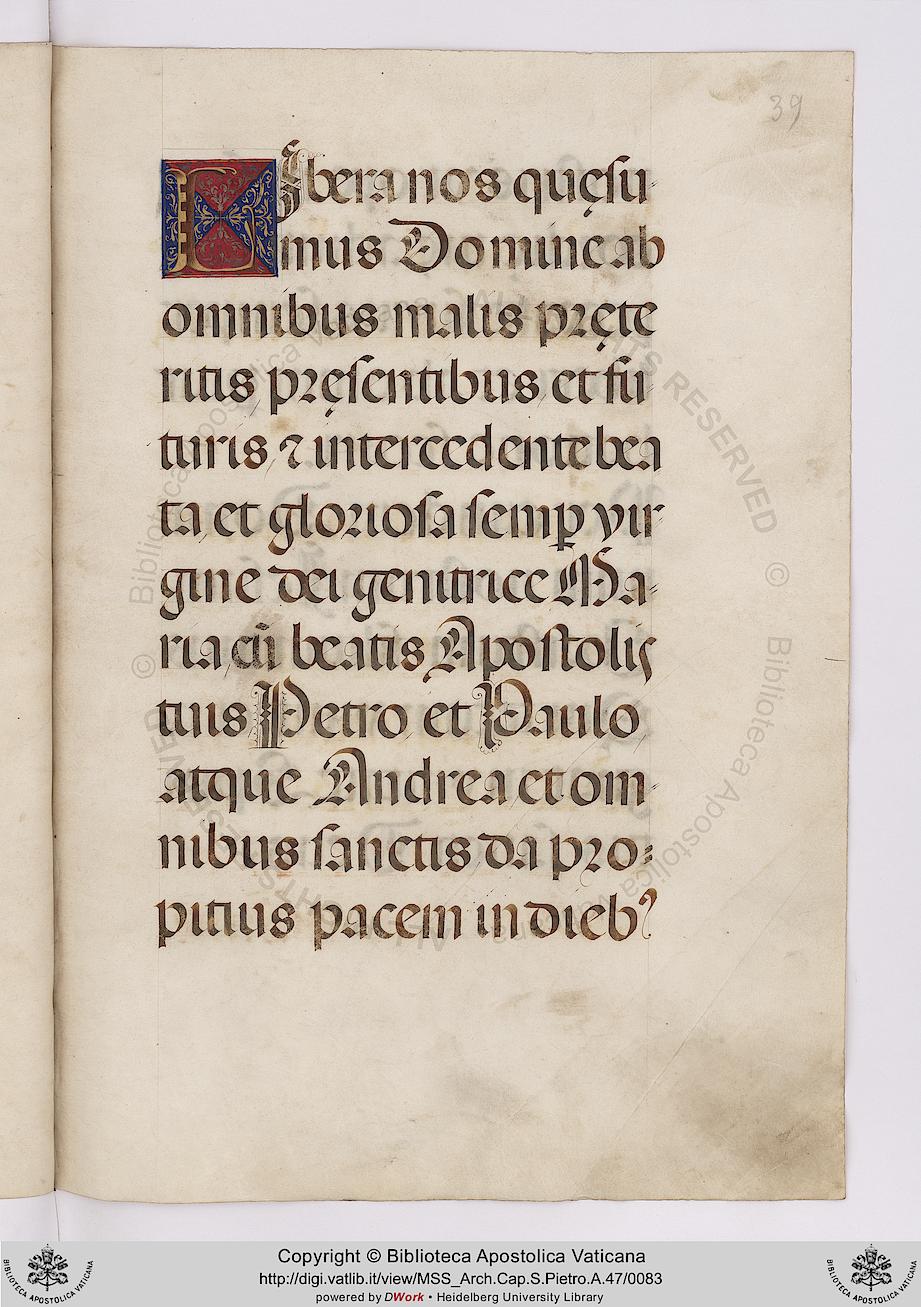 39
Libera nos quęſu-
mus Domine ab
omnibus malis pręte
ritis pręſentibus, et fu
turis, ⁊ intercedente bea
ta, et glorioſa ſemꝑ vir-
gine dei genitrice Ma-
ria, cū beatis Apoſtolis
tuis Petro, et Paulo
atque Andrea et om-
nibus ſanctis da pro-
pitius pacem in dieb⁹
© Biblioteca Apostolica Vaticana ALL RIGHTS RESERVED
© Biblioteca Apostolica Vaticana ALL RIGHTS RESERVED
BIBLIOTECA APOSTOLICA VATICANA
Copyright © Biblioteca Apostolica Vaticana
http://digi.vatlib.it/view/MSS_Arch.Cap.S.Pietro.A.47/0083
powered by DWork • Heidelberg University Library
BIBLIOTECA APOSTOLICA VATICANA